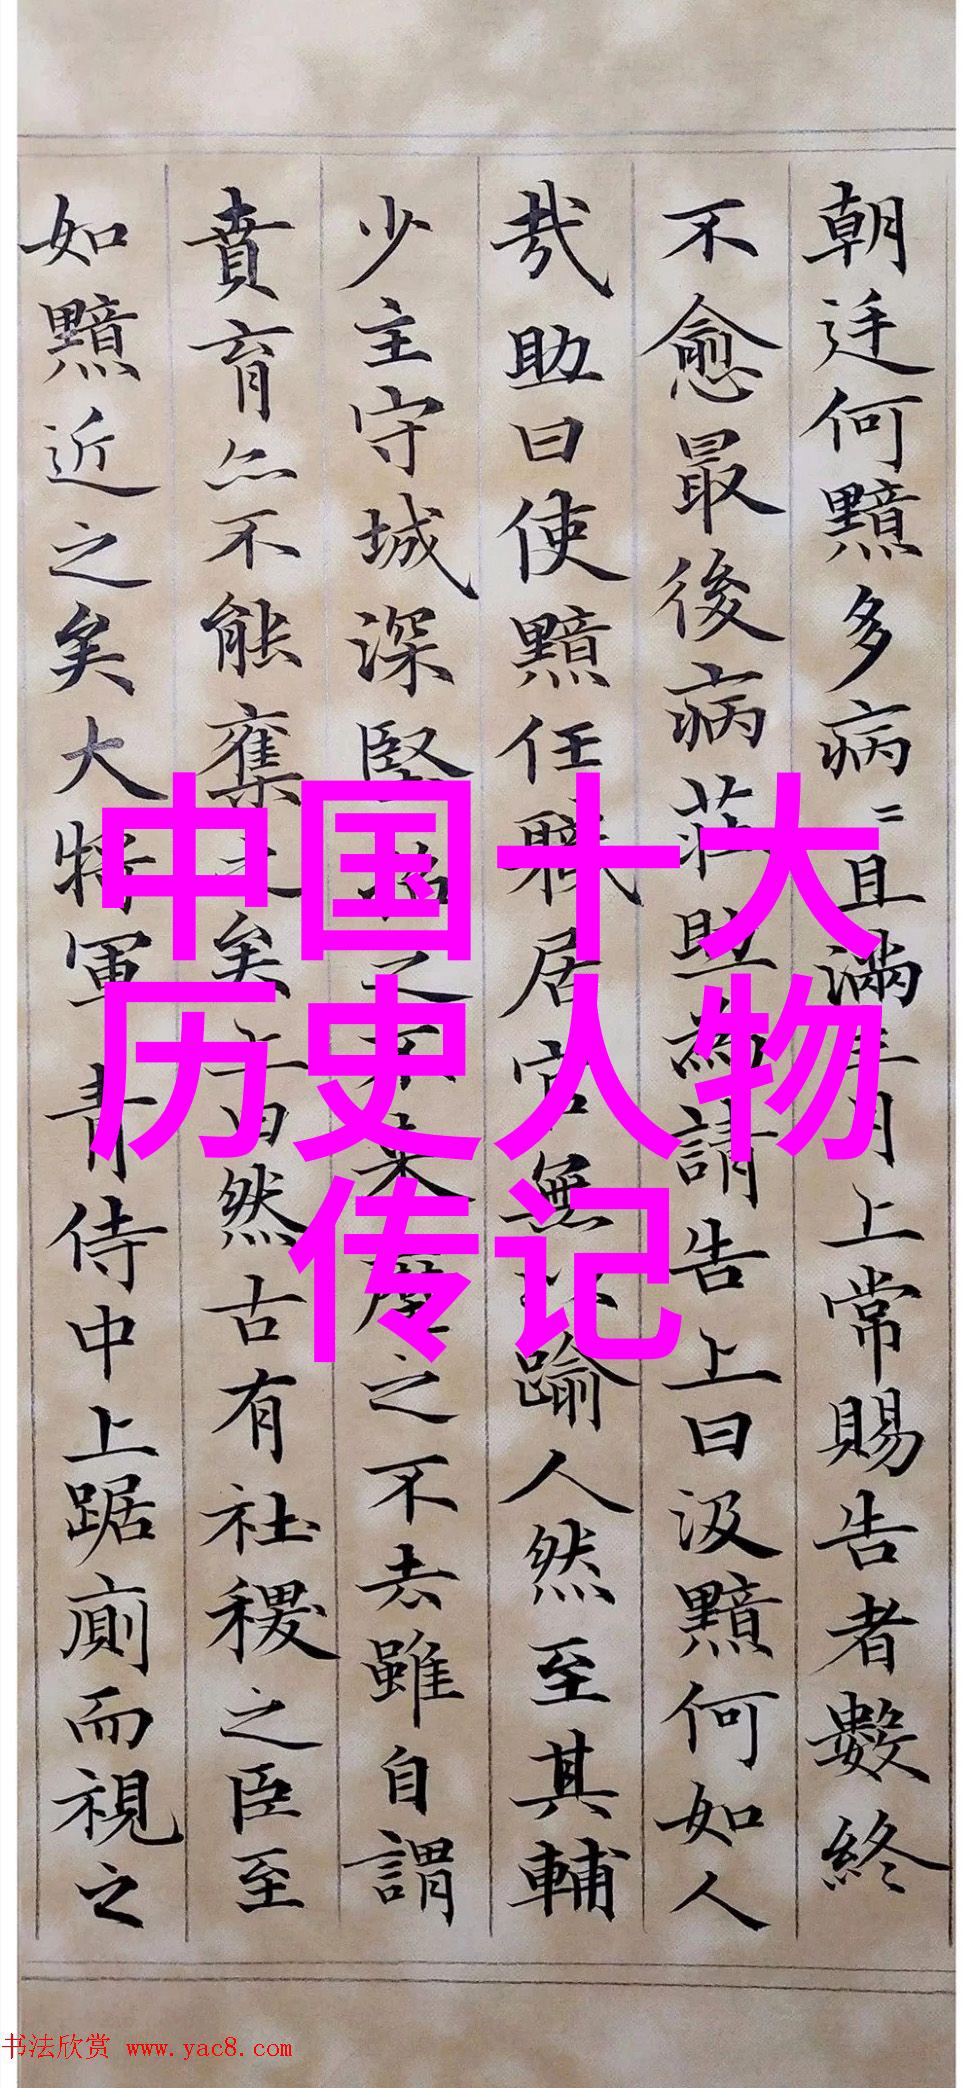 朝廷何黯多病〻且滿三月上常賜告者數終
不愈最後病莊助為請告上曰汲黯何如人
哉助曰使黯任職居官無以踰人然至其輔
少主守城深堅招之不來麾之不去雖自謂
賁育亦不能奪之矣上曰然古有社稷之臣至
如黯近之矣大將軍青侍中上踞廁而視之
中国十大
历史人物
传记
书法欣赏 www.yac8.com